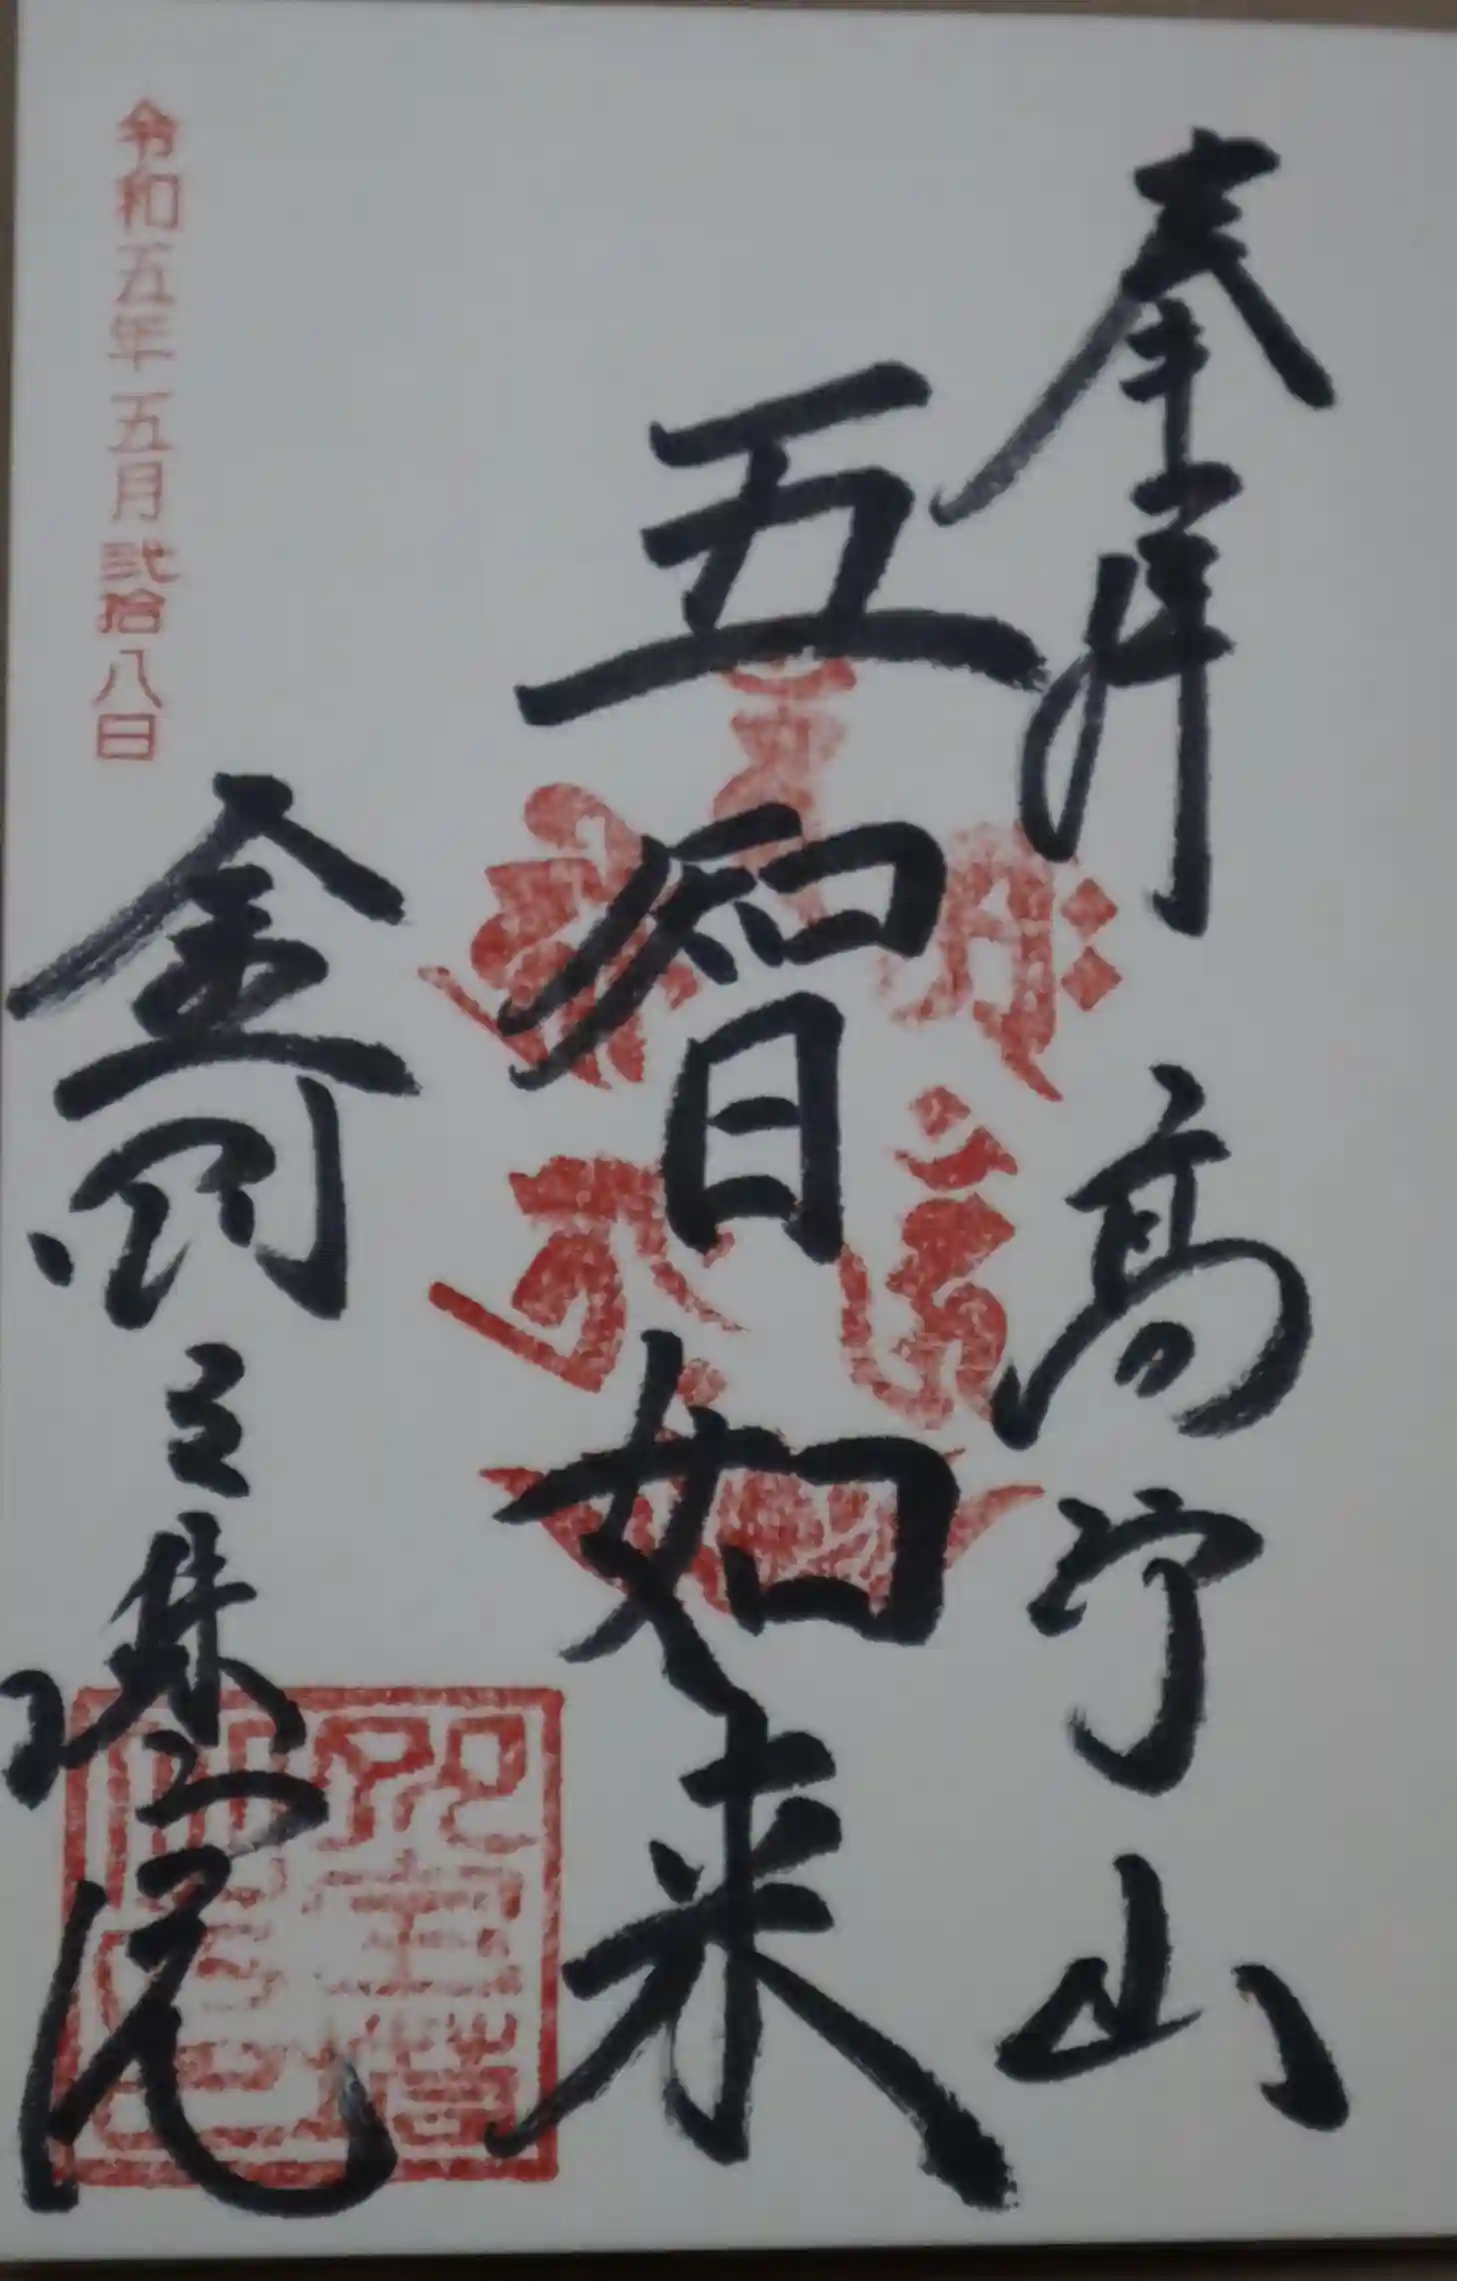 奉拝 高野山
五智如来
金剛三昧院
令和五年五月弐拾八日